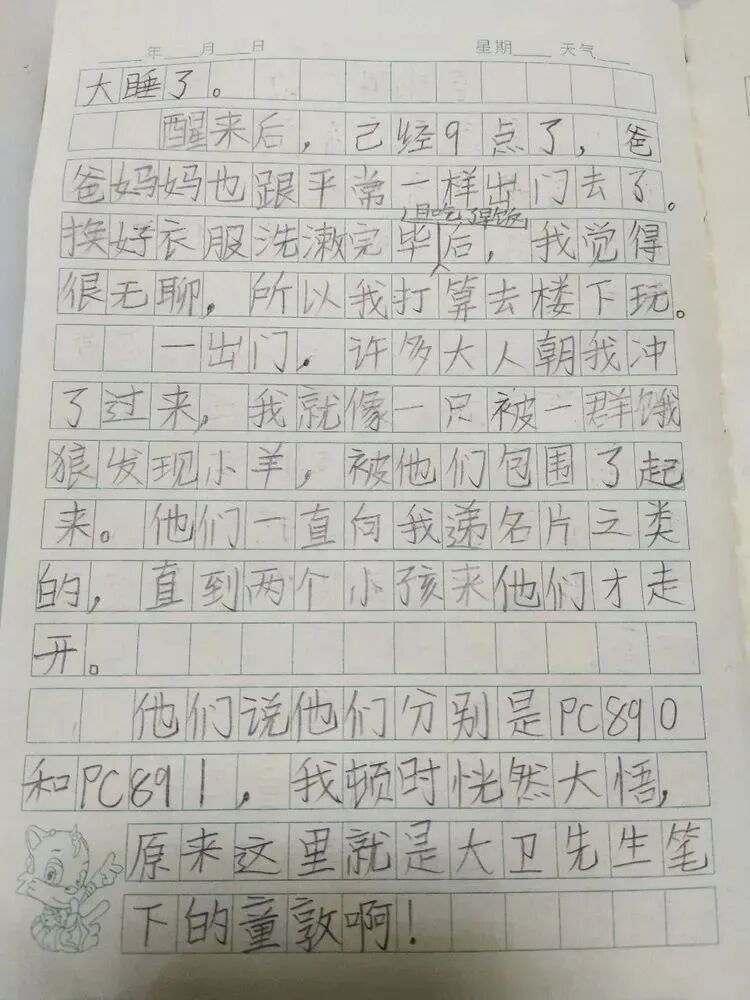 年 月 日 星期 天气
大睡了。
醒来后，己经9点了，爸
爸妈妈也跟平常一样出门去了。
挨好衣服洗漱完毕且吃了早饭后，我觉得
很无聊，所以我打算去楼下玩。
一出门，许多大人朝我冲
了过来，我就像一只被一群饿
狼发现小羊，被他们包围了起
来。他们一直向我递名片之类
的，直到两个小孩来他们才走
开。
他们说他们分别是PC890
和PC891，我顿时恍然大悟，
原来这里就是大卫先生笔
下的童敦啊！